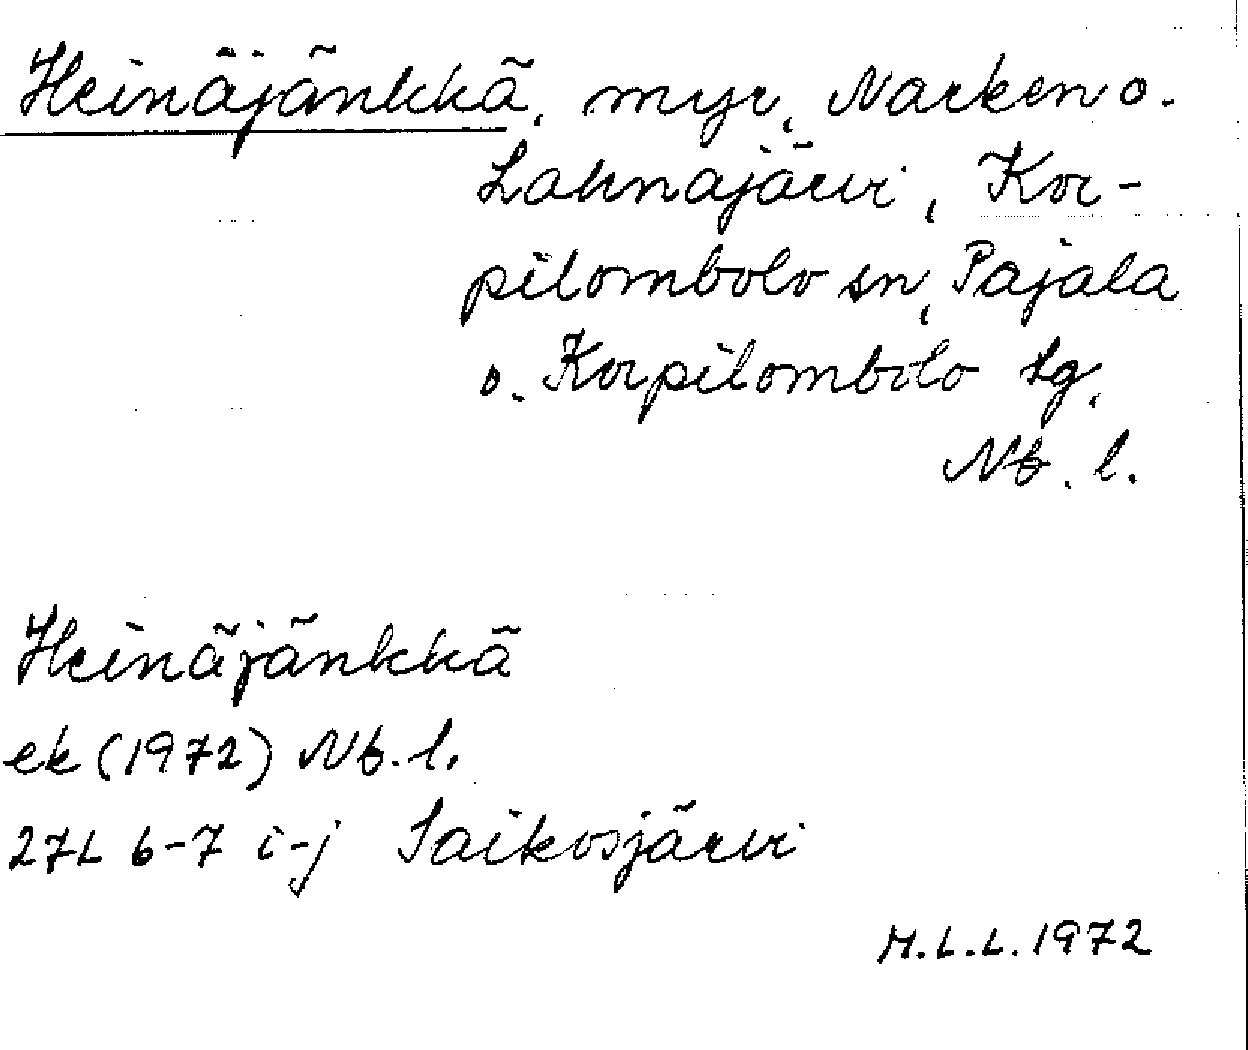 Heinäjänkkä, myr, Narken o.
Lahnajärvi, Kor-
pilombolo sn, Pajala
o. Korpilombolo tg,
Nb. l.
Heinäjänkkä
ek (1972) Nb. l.
27L 6-7 i-j Saikosjärvi
M.L.L. 1972